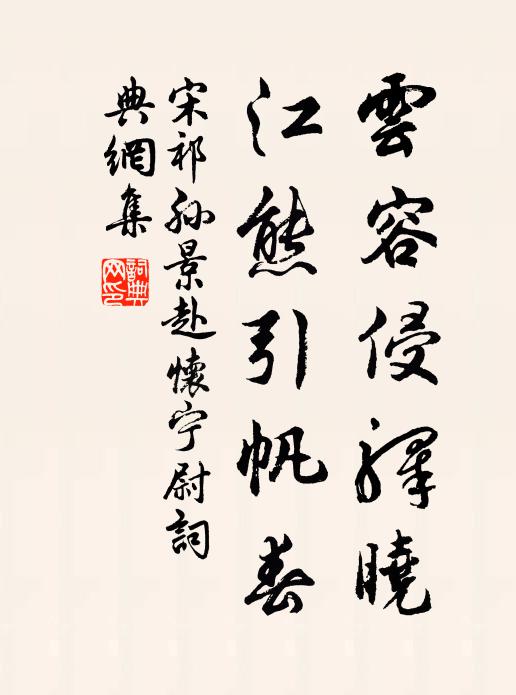 雲容侵驛曉
江態引帆春
宋祁孫景赴懷宁尉詞
典網集
詞典网印